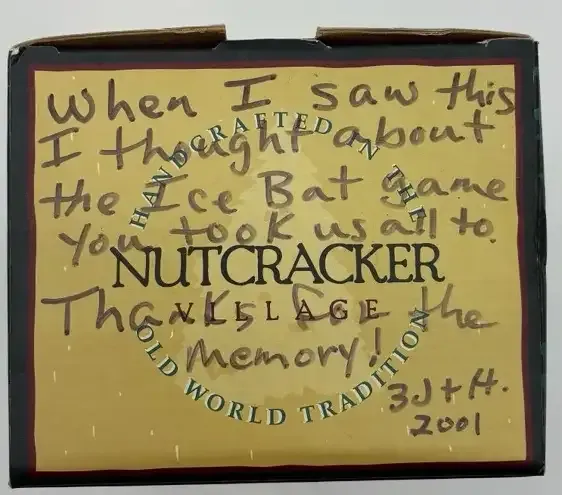 When I saw this
I thought about
the Ice Bat game
you took us all to.
Thanks for the
memory!
3J + H.
2001
HANDCRAFTED IN THE
NUTCRACKER
VILLAGE
OLD WORLD TRADITION